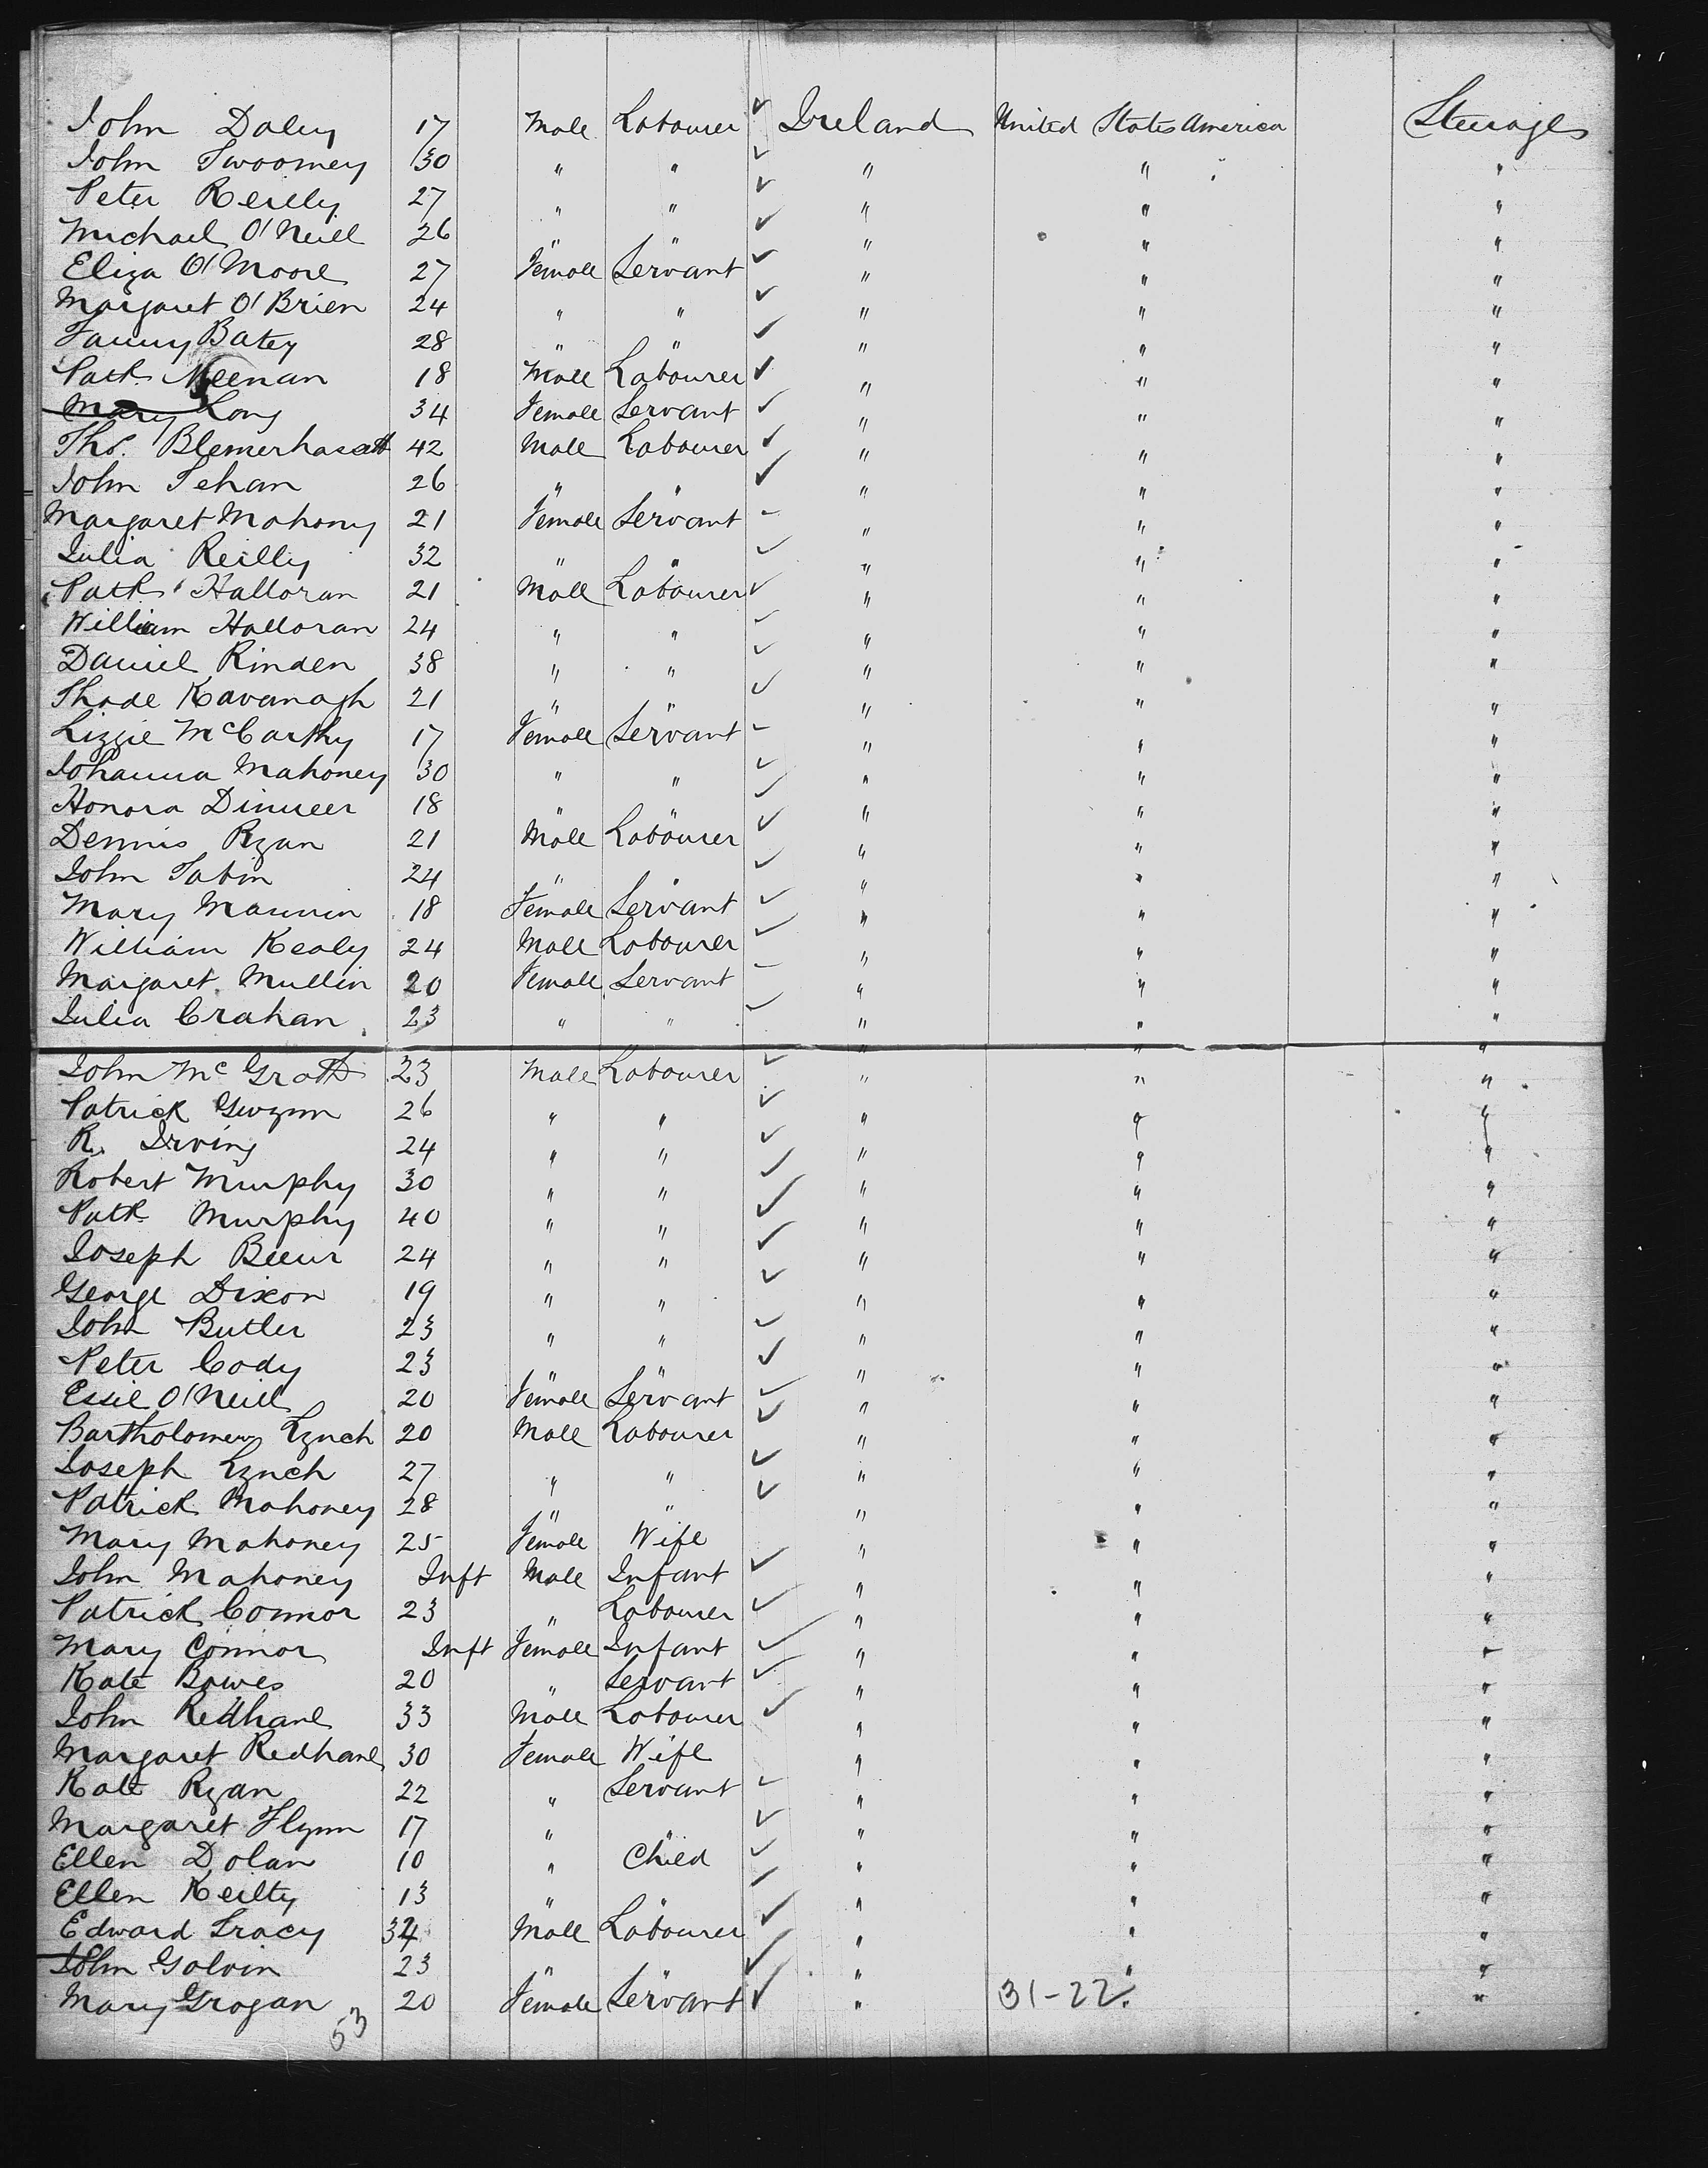 John Daley 17 Male Labourer ✓ Ireland United States America Steerage
John Twoomey 30 " " ✓ " " "
Peter Reilly 27 " " ✓ " " "
Michael O'Neill 26 " " ✓ " " "
Eliza O'Moore 27 Female Servant ✓ " " "
Margaret O'Brien 24 " " ✓ " " "
Fanny Batey 28 " " ✓ " " "
Patk Meenan 18 Male Labourer ✓ " " "
Mary Long 34 Female Servant ✓ " " "
Thos. Blemerhasatt 42 Male Labourer ✓ " " "
John Tehan 26 " " ✓ " " "
Margaret Mahony 21 Female Servant ✓ " " "
Julia Reilly 32 " " ✓ " " "
Patk Halloran 21 Male Labourer ✓ " " "
William Halloran 24 " " ✓ " " "
Daniel Rinden 38 " " ✓ " " "
Thade Kavanagh 21 " " ✓ " " "
Lizzie McCarthy 17 Female Servant ✓ " " "
Johanna Mahoney 30 " " ✓ " " "
Honora Dinneer 18 " " ✓ " " "
Dennis Ryan 21 Male Labourer ✓ " " "
John Tabin 24 " " ✓ " " "
Mary Mannin 18 Female Servant ✓ " " "
William Kealy 24 Male Labourer ✓ " " "
Margaret Mullin 20 Female Servant ✓ " " "
Julia Crahan 23 " " ✓ " " "
John McGrath 23 Male Labourer ✓ " " "
Patrick Gwynn 26 " " ✓ " " "
R. Irving 24 " " ✓ " " "
Robert Murphy 30 " " ✓ " " "
Patk Murphy 40 " " ✓ " " "
Joseph 24 " " ✓ " " "
George Dixon 19 " " ✓ " " "
John Butler 23 " " ✓ " " "
Peter Cody 23 " " ✓ " " "
Essie O'Neill 20 Female Servant ✓ " " "
Bartholomew Lynch 20 Male Labourer ✓ " " "
Joseph Lynch 27 " " ✓ " " "
Patrick Mahoney 28 " " ✓ " " "
Mary Mahoney 25 Female Wife " " "
John Mahoney Inft Male Infant ✓ " " "
Patrick Connor 23 " Labourer ✓ " " "
Mary Connor Inft Female Infant ✓ " " "
Kate Bowes 20 " Servant ✓ " " "
John Redhane 33 Male Labourer ✓ " " "
Margaret Redhane 30 Female Wife " " "
Kate Ryan 22 " Servant ✓ " " "
Margaret Flynn 17 " " ✓ " " "
Ellen Dolan 10 " Child ✓ " " "
Ellen Keilty 13 " " ✓ " " "
Edward Tracy 34 Male Labourer ✓ " " "
John Galvin 23 " " ✓ " " "
Mary Grogan 20 Female Servant ✓ " 31-22. "
53